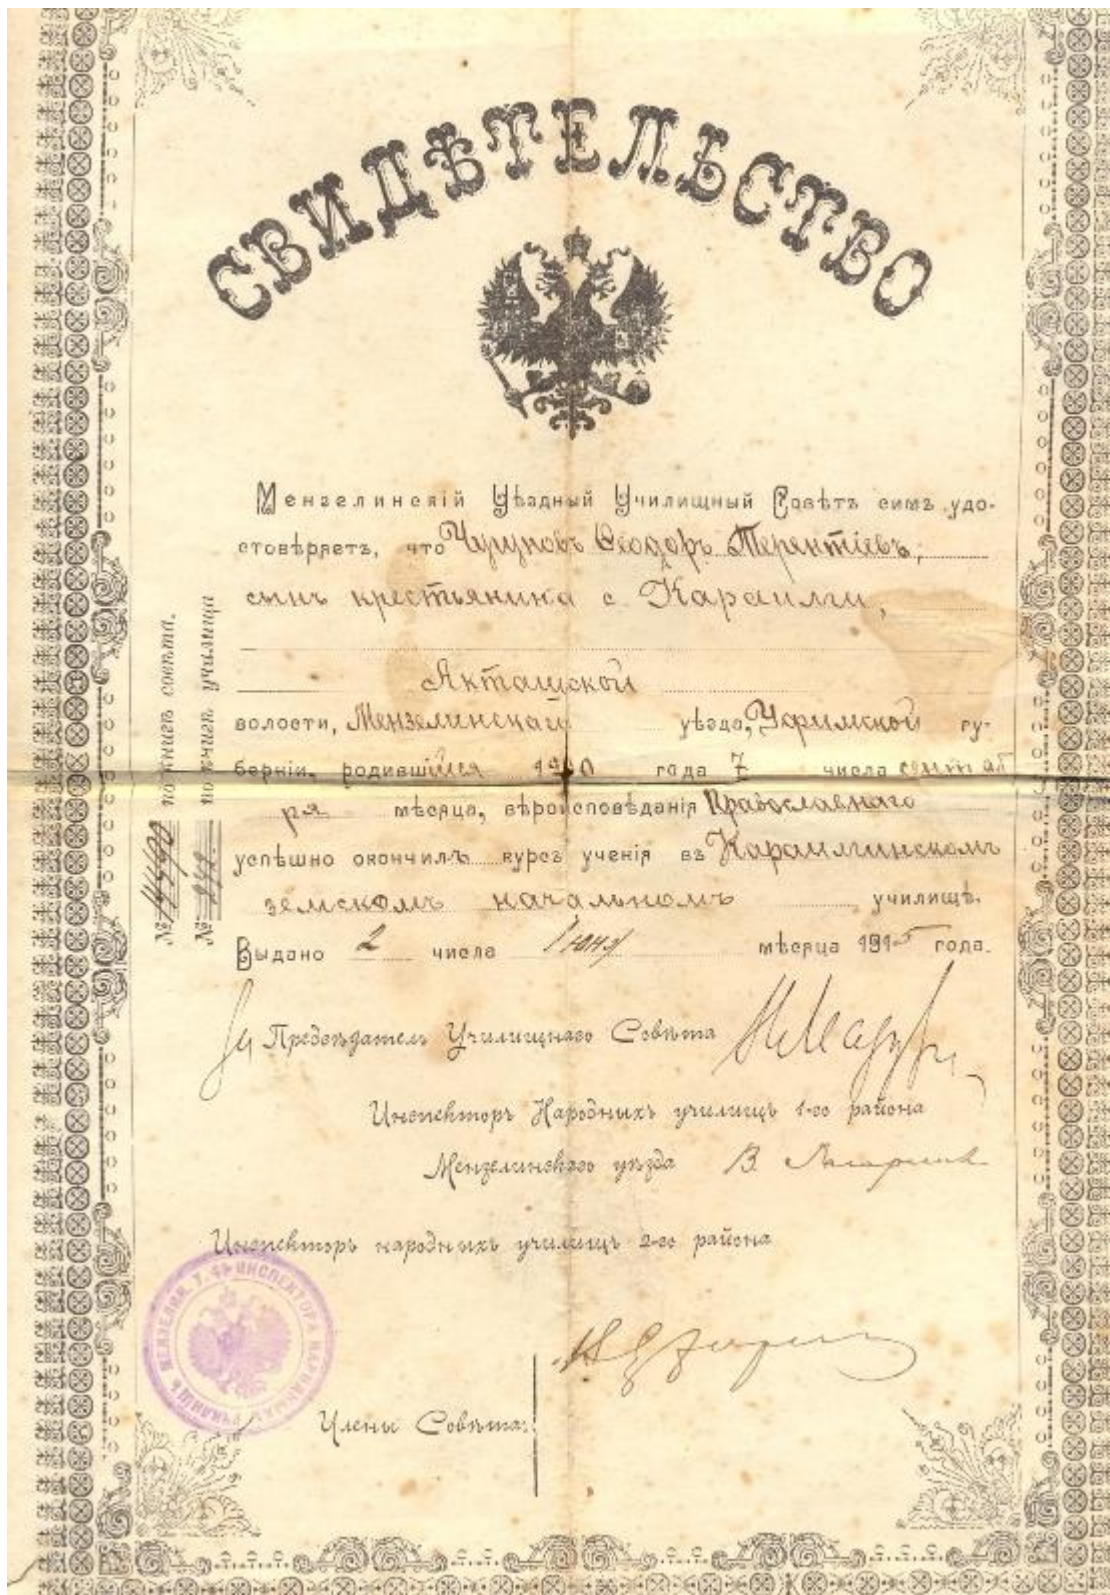 СВИДѢТЕЛЬСТВО
Мензелинскій Уѣздный Училищный Совѣтъ симъ удо-
стовѣряетъ, что Чугуновъ Ѳеодоръ Терентіевъ,
сынъ крестьянина с. Караилги,
Акташской
волости, Мензелинскаго уѣзда, Уфимской гу-
берніи, родившійся 1900 года 7 числа сентяб
ря мѣсяца, вѣроисповѣданія Православнаго
успѣшно окончилъ курсъ ученія въ Караилгинскомъ
земскомъ начальномъ училищѣ.
Выдано 2 числа Іюня мѣсяца 1915 года.
№ по книгѣ совѣта.
№ по книгѣ училища
Предсѣдатель Училищнаго Совѣта
Инспекторъ Народныхъ училищъ 1-го района
Мензелинскаго уѣзда В.
Инспекторъ народныхъ училищъ 2-го района
ИНСПЕКТОРА НАРОДНЫХЪ УЧИЛИЩЪ МЕНЗЕЛИН. У.
Члены Совѣта: